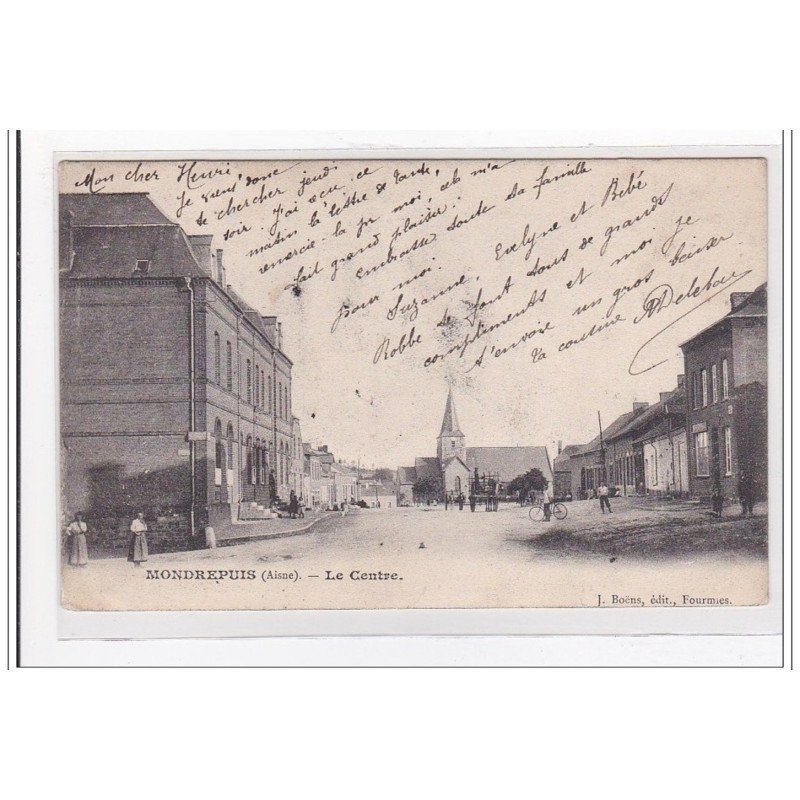 Mon cher Henri,
Je viens donc
te chercher jeudi
soir. J'ai reçu ce
matin la lettre de tante,
remercie-la pr moi, cela m'a
fait grand plaisir.
embrasse toute ta famille
pour moi.
Suzanne, Evelyne et Bébé
Robbe te font tous de grands
compliments et moi je
t'envoie un gros baiser
ta cousine MDelebau
MONDREPUIS (Aisne). — Le Centre.
J. Boëns, édit., Fourmies.